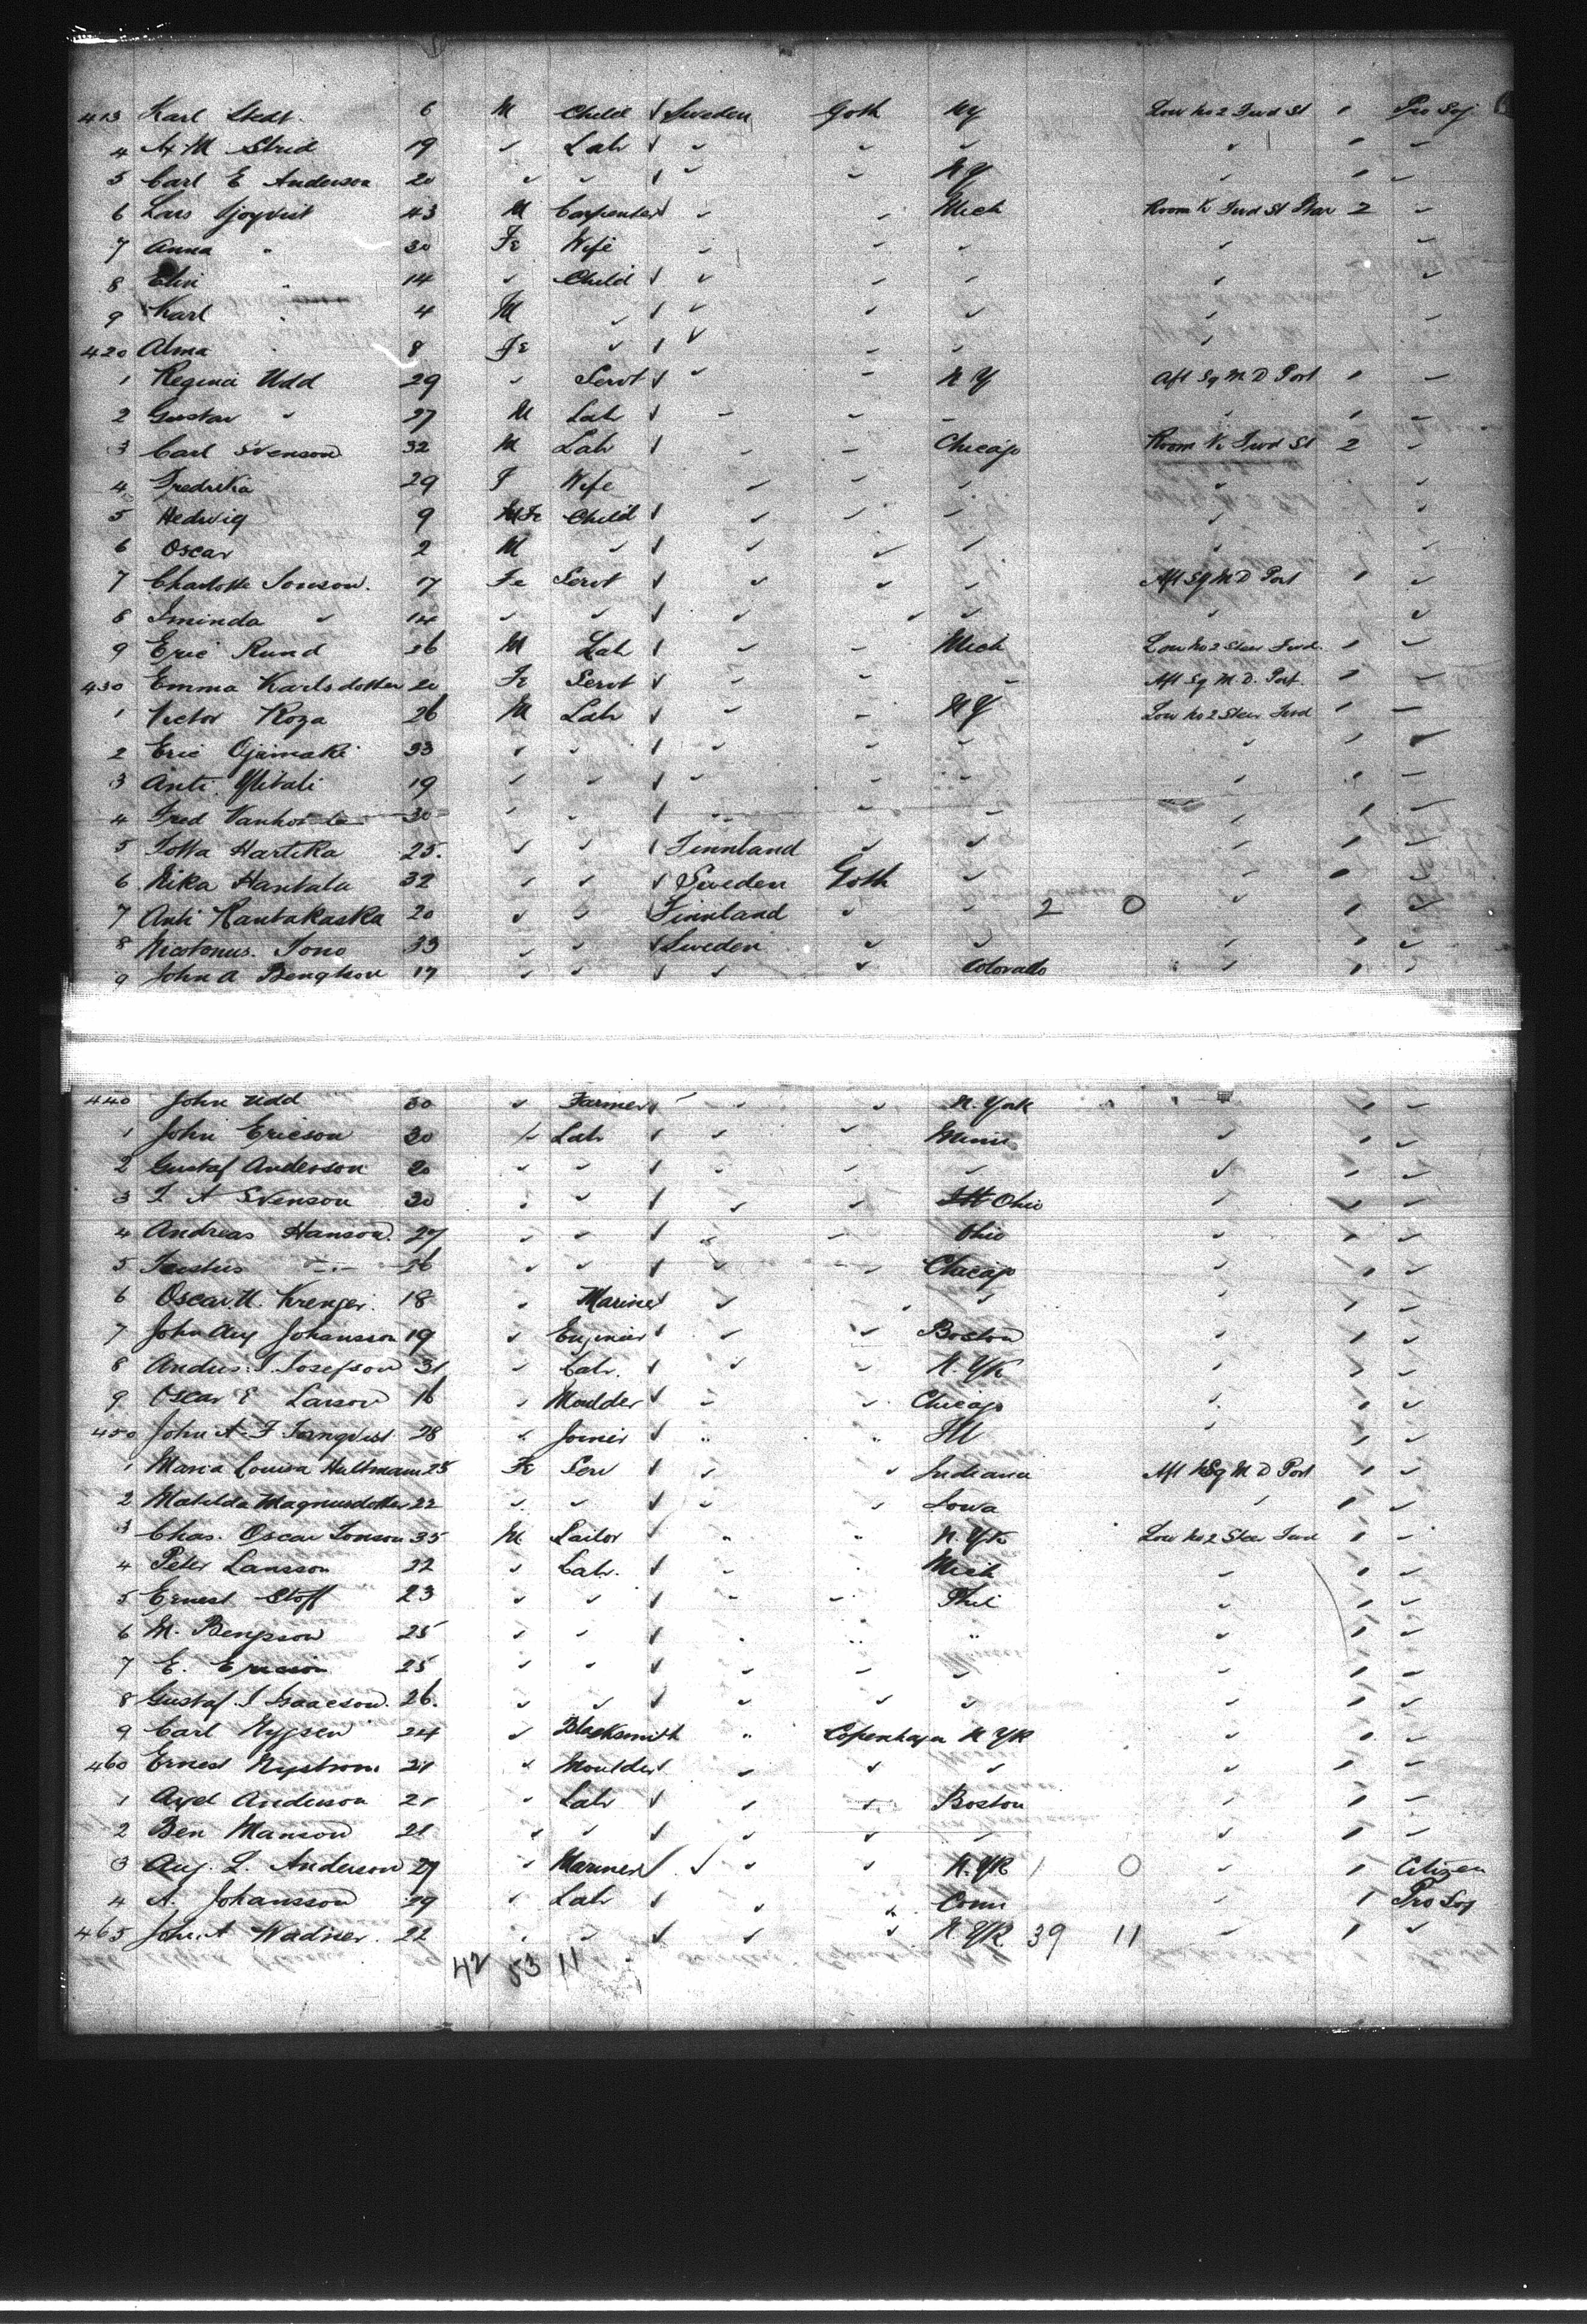 413 Karl Stedt. 6 M Child Sweden Goth NY Low No 2 Fwd St 1 Pro Soj
4 A M Strid 19 " Lab " " " " 1 "
5 Carl E Anderson 20 " " " N Y " 1 "
6 Lars Sjoqvist 43 M Carpenter " " Mich Room K Fwd St Star 2 "
7 Anna " 30 Fe Wife " " " " "
8 Elin " 14 " Child " " " " "
9 Karl " 4 M " " " " " "
420 Alma " 8 Fe " " " " " "
1 Regina Udd 29 " Servt " " N Y Aft Sq M D Port 1 "
2 Gustav " 27 M Lab " " " " 1 "
3 Carl Svenson 32 M Lab " " Chicago Room K Fwd St 2 "
4 Fredrika 29 F Wife " " " " "
5 Hedvig 9 Fe Child " " " " "
6 Oscar 2 M " " " " " "
7 Charlotte Jonson. 17 Fe Servt " " " Aft Sq M D Port 1 "
8 Iminda " 14 " " " " " " "
9 Eric Rund 26 M Lab " " Mich Low No 2 Steer Fwd. 1 "
430 Emma Karlsdotter 20 Fe Servt " " " Aft Sq M. D. Port. 1 "
1 Victor Roza 26 M Lab " " N Y Low No 2 Steer Fwd 1 "
2 Eric Ojamaki 33 " " " " " " 1 "
3 Anti 19 " " " " " " 1 "
4 Fred 30 " " " " " " 1 "
5 Hartika 25. " " Finnland " " " 1 "
6 Hantala 32 " " Sweden Goth " " 1 "
7 Anti Rantakaska 20 " " Finnland " " 2 0 " 1 "
8 Jono 33 " " Sweden " " " 1 "
9 John A Bengtson 17 " " " " Colorado " 1 "
440 John Udd 30 " Farmer " " N. York " 1 "
1 John Ericson 20 " Lab " " Minn " 1 "
2 Gustaf Anderson 20 " " " " " " 1 "
3 A Svenson 20 " " " " Ohio " 1 "
4 Andreas Hanson. 27 " " " " Ohio " 1 "
5 " 26 " " " " Chicago " 1 "
6 Oscar 18 " Mariner " " " " 1 "
7 John Aug Johansson 19 " Enginier " " Boston " 1 "
8 Josefson 31 " Lab. " " N. YK " 1 "
9 Oscar E Larson 16 " Moulder " " Chicago " 1 "
450 John A. F Tornqvist 28 " Joiner " " Ill " 1 "
1 Maria Louisa Hultmann 25 Fe Serv " " Indiana Aft Sq M D Port 1 "
2 Matilda Magnusdotter 22 " " " " Iowa " 1 "
3 Chas. Oscar Jonson 35 M Sailor " " N. YK Low No 2 Steer Fwd 1 "
4 Peter Lansson 22 " Lab. " " Mich " 1 "
5 Ernest Stoff 23 " " " " Phil " 1 "
6 M. Bengson 25 " " " " " " 1 "
7 E. Ericson 25 " " " " " " 1 "
8 Gustaf. I Isaacson. 26. " " " " " " 1 "
9 Carl Nygsen 24 " Blacksmith " Copenhagen N YK " 1 "
460 Ernest Nystrom 21 " Moulder " " " " 1 "
1 Axel Anderson 21 " Lab " " Boston " 1 "
2 Ben Manson 21 " " " " " " 1 "
3 Aug. L. Anderson 27 " Mariner " " N. YK 1 0 " 1 Citizen
4 A. Johansson 29 " Lab " " Conn " 1 Pro Soj
465 John A Wadner. 22 " " " " N. YK 39 11 " 1 "
42 53 11